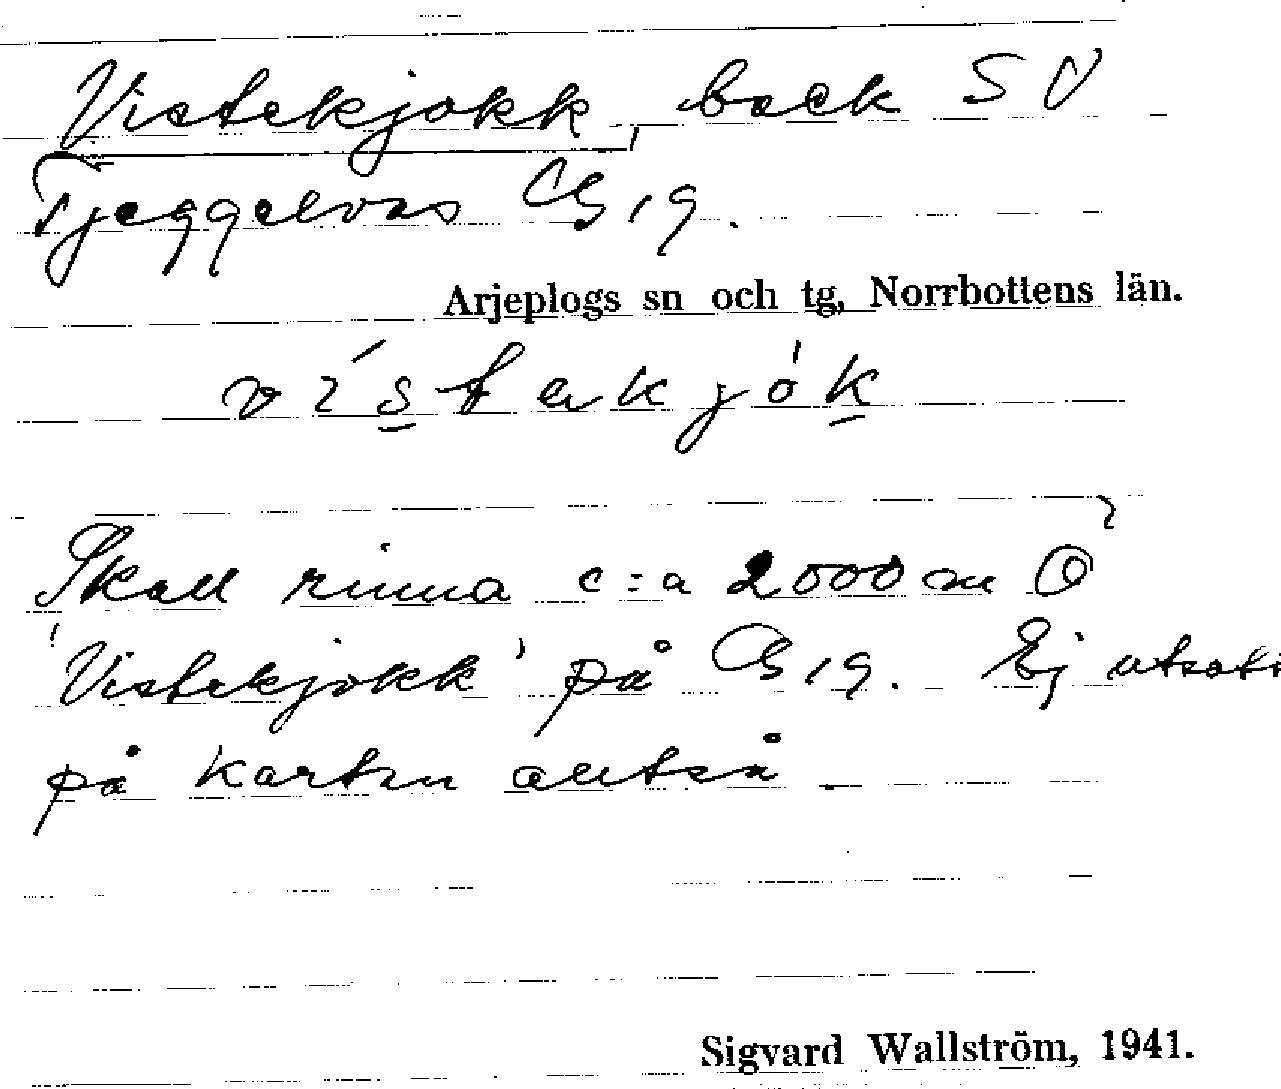 Vistekjokk, bäck SV
Tjeggelvas CB 19.
Arjeplogs sn och tg, Norrbottens län.
vístakjók
Skall rinna c:a 2000 m Ö
'Vistekjokk' på CB 19. Ej utsatt
på kartan alltså
Sigvard Wallström, 1941.